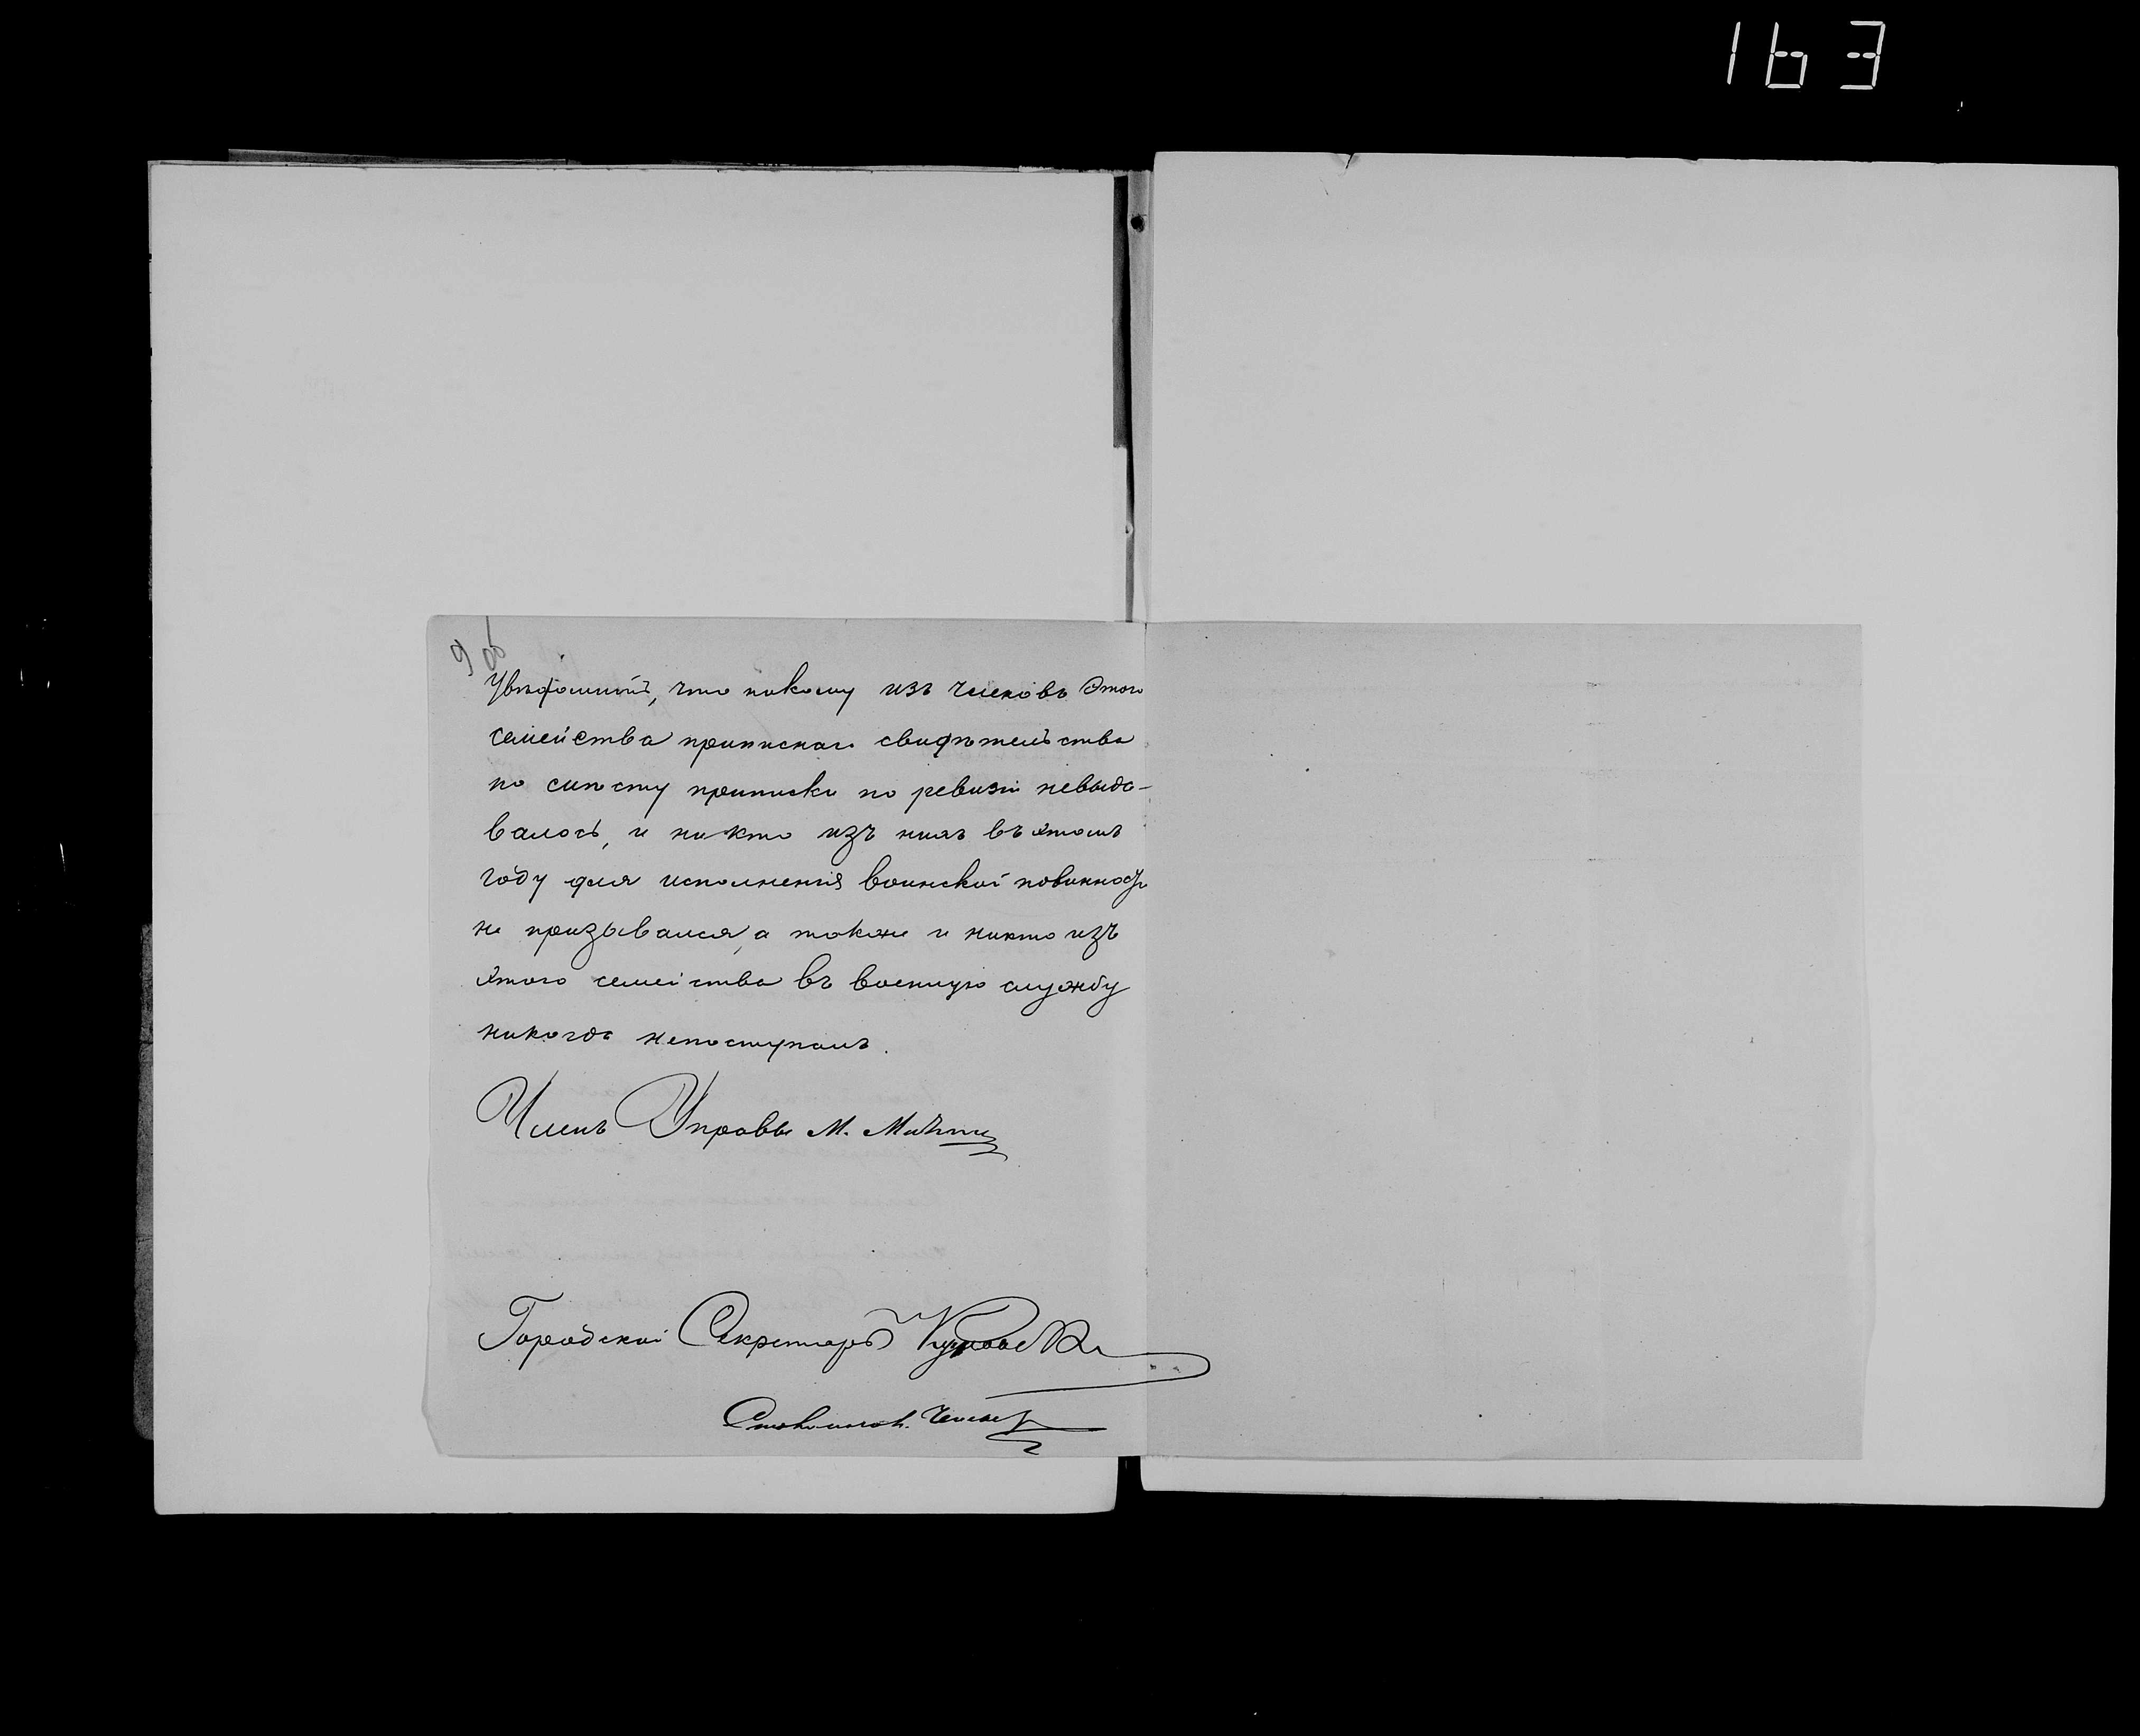 163
9 об
Увѣдомляетъ, что никому изъ членовъ этого
семейства приписнаго свидѣтельства
по мѣсту приписки по ревизіи невыда-
валось, и никто изъ нихъ въ этомъ
году для исполненія воинской повинности
не призывался, а также и никто изъ
этого семейства въ военную службу
никогда непоступалъ.
Членъ Управы М.
Городской Секретарь